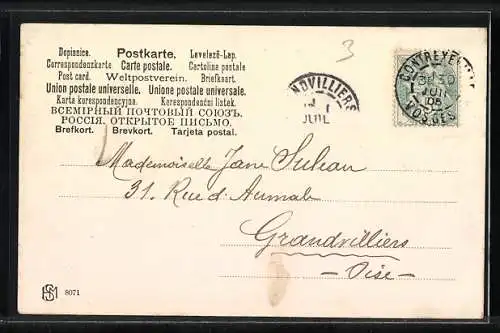 Dopisnice. Postkarte. Levelező-Lap.
Correspondenzkarte Carte postale. Cartolina postale
Post card. Weltpostverein. Briefkaart.
Union postale universelle. Unione postale universale.
Karta korespondencyjna. Korespondenční listek.
ВСЕМІРНЫЙ ПОЧТОВЫЙ СОЮЗЪ.
РОССІЯ. ОТКРЫТОЕ ПИСЬМО.
Brefkort. Brevkort. Tarjeta postal.
3
NDVILLIERS
JUIL
CONTREXEV
30
JUIL
05
VOSGES
Mademoiselle Jane
31. Rue d'Aumale
Grandvilliers
– Oise –
8071